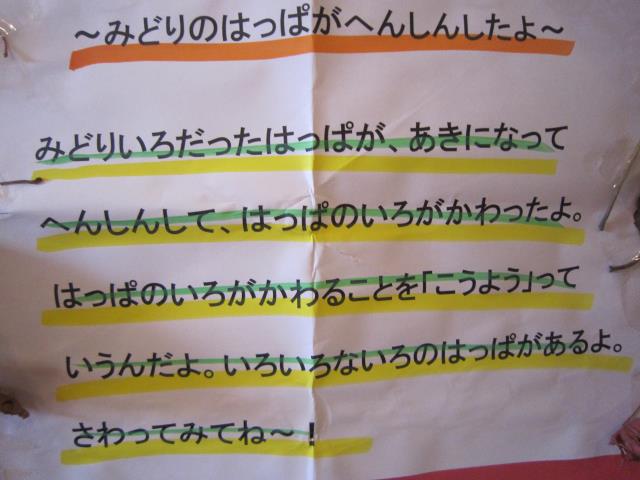 ～みどりのはっぱがへんしんしたよ～
みどりいろだったはっぱが、あきになって
へんしんして、はっぱのいろがかわったよ。
はっぱのいろがかわることを「こうよう」って
いうんだよ。いろいろないろのはっぱがあるよ。
さわってみてね～！